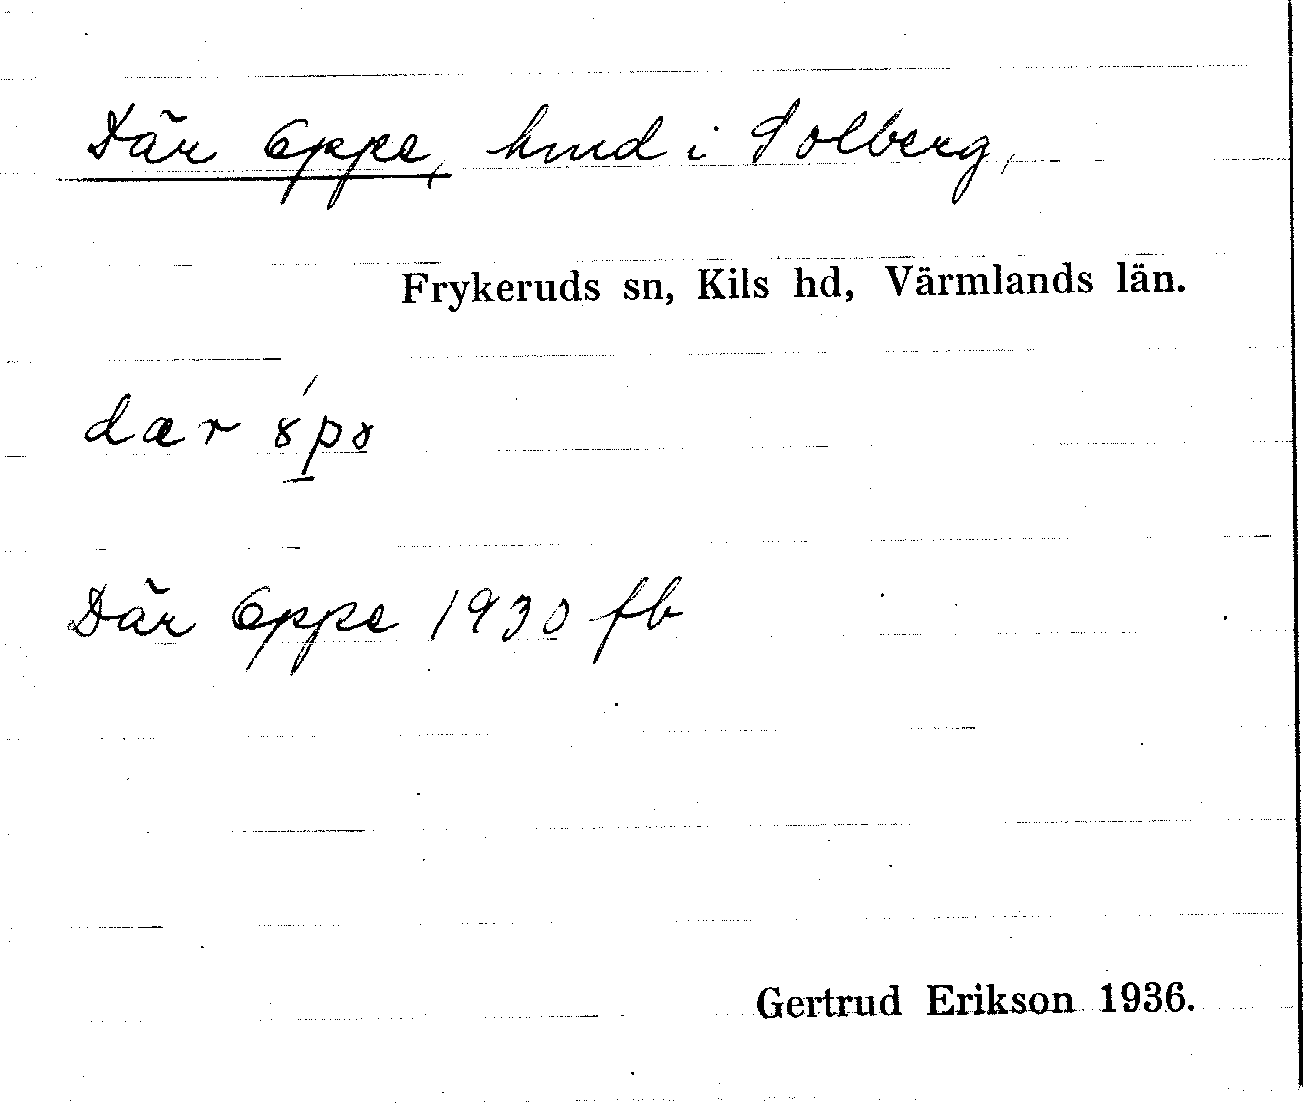 Där Oppe, hmd i Solberg,
Frykeruds sn, Kils hd, Värmlands län.
dær ɤ́p̲ɤ
Där Oppe 1930 fb
Gertrud Erikson 1936.